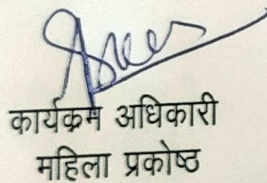 कार्यक्रम अधिकारी
महिला प्रकोष्ठ